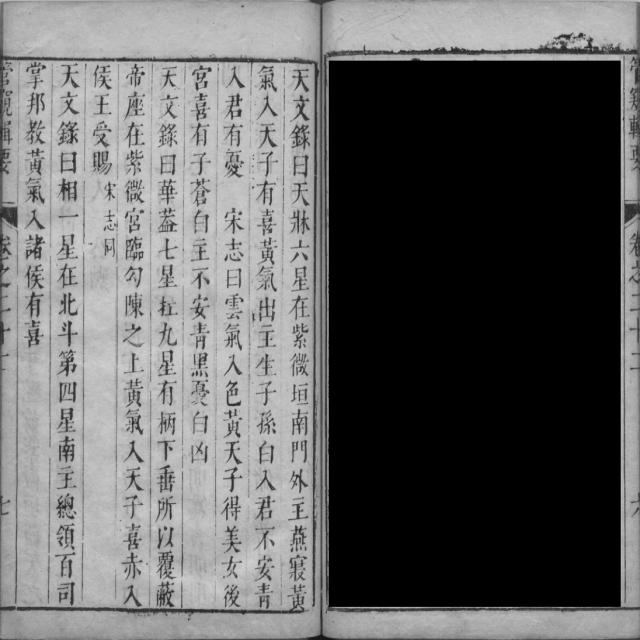 天文錄曰天牀六星在紫微垣南門外主燕寢黃
氣入天子有喜黃氣出主生子孫白入君不安青
入君有憂　宋志曰雲氣入色黃天子得美女後
宮喜有子蒼白主不安青黑憂白凶
天文錄曰華蓋七星杠九星有柄下垂所以覆蔽
帝座在紫微宮臨勾陳之上黃氣入天子喜赤入
侯王受賜宋志同
天文錄曰相一星在北斗第四星南主總領百司
掌邦教黃氣入諸侯有喜